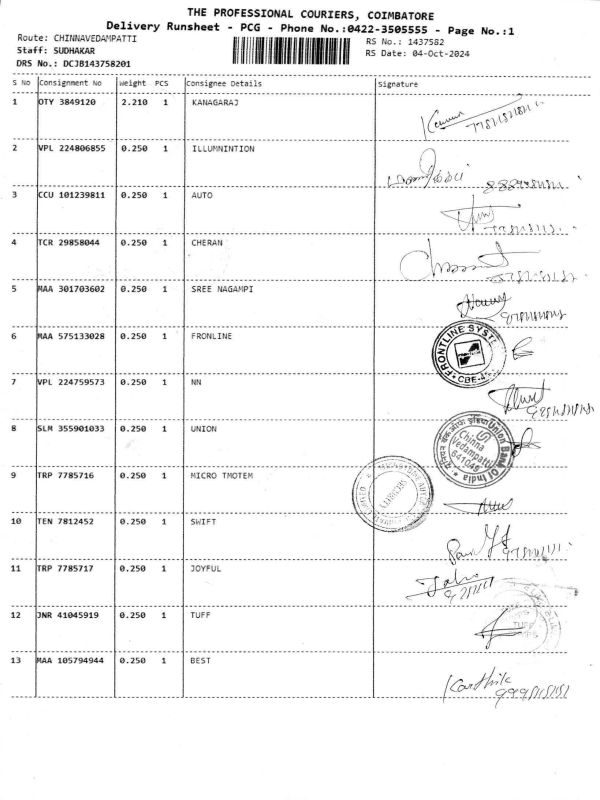 THE PROFESSIONAL COURIERS, COIMBATORE
Delivery Runsheet - PCG - Phone No.:0422-3505555 - Page No.:1
Route: CHINNAVEDAMPATTI
RS No.: 1437582
Staff: SUDHAKAR
RS Date: 04-Oct-2024
DRS No.: DCJB143758201
S No Consignment No Weight PCS Consignee Details Signature
1 OTY 3849120 2.210 1 KANAGARAJ
2 VPL 224806855 0.250 1 ILLUMNINTION
3 CCU 101239811 0.250 1 AUTO
4 TCR 29858044 0.250 1 CHERAN
5 MAA 301703602 0.250 1 SREE NAGAMPI
6 MAA 575133028 0.250 1 FRONLINE
FRONTLINE SYSTE
CBE-4
7 VPL 224759573 0.250 1 NN
8 SLM 355901033 0.250 1 UNION
Union Bank Of India
Chinna
Vedampatti
641049
9 TRP 7785716 0.250 1 MICRO TMOTEM
10 TEN 7812452 0.250 1 SWIFT
11 TRP 7785717 0.250 1 JOYFUL
12 JNR 41045919 0.250 1 TUFF
TUFF
13 MAA 105794944 0.250 1 BEST
Karthik